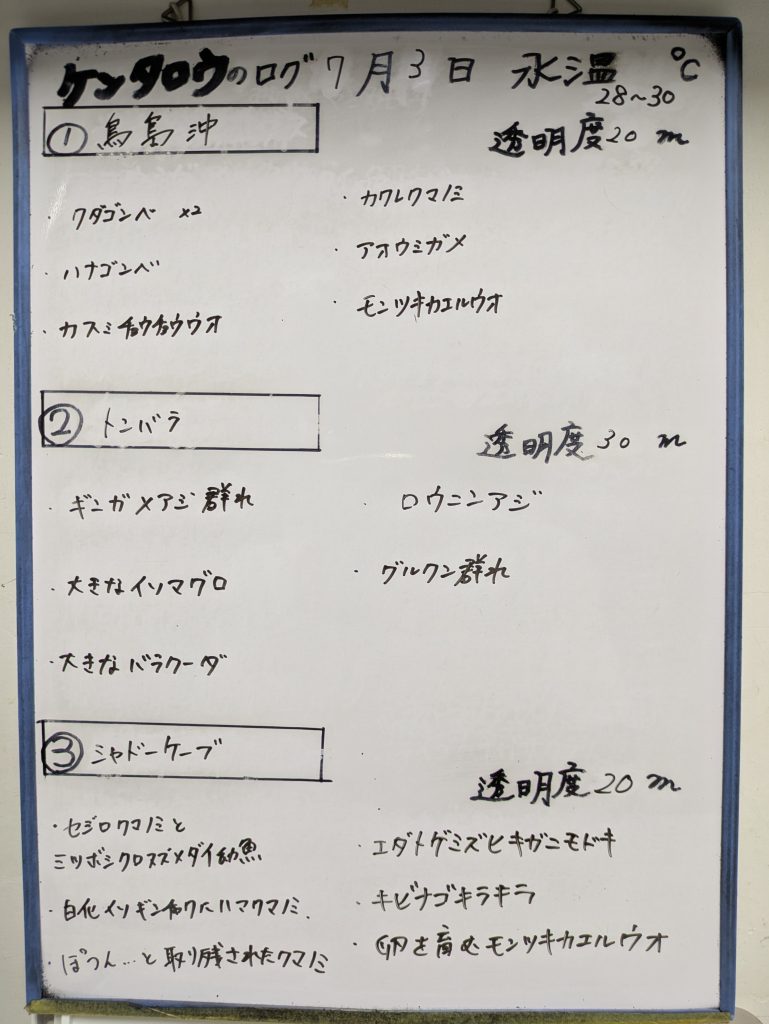 ケンタロウのログ 7月3日 水温 28～30 ℃
① 鳥島沖
透明度20m
・クダゴンベ ×2
・ハナゴンベ
・カスミチョウチョウウオ
・カクレクマノミ
・アオウミガメ
・モンツキカエルウオ
② トンバラ
透明度30m
・ギンガメアジ群れ
・大きなイソマグロ
・大きなバラクーダ
・ロウニンアジ
・グルクン群れ
③ シャドーケーブ
透明度20m
・セジロクマノミと
ミツボシクロスズメダイ幼魚
・白化イソギンチャクにハマクマノミ、
・ぽつん…と取り残されたクマノミ
・エダトゲミズヒキガニモドキ
・キビナゴキラキラ
・卵を育むモンツキカエルウオ